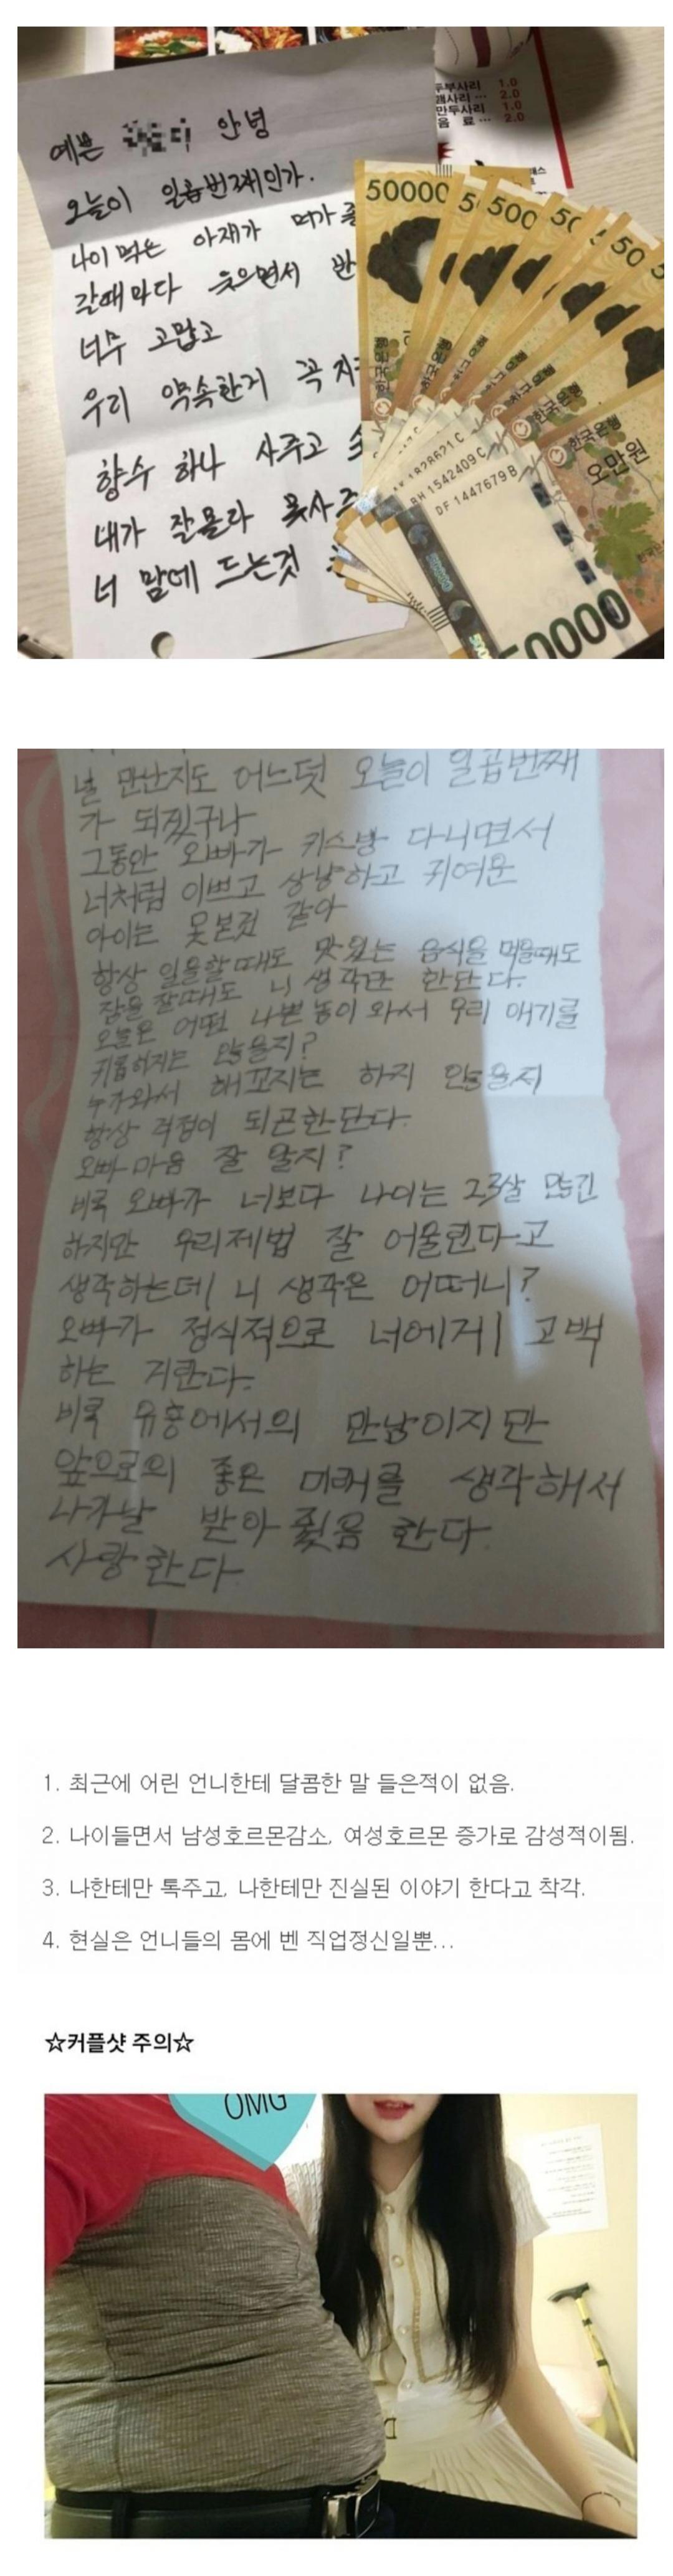 두부사리 1.0
2.0
만두사리 1.0
음 료… 2.0
예쁜 안녕
오늘이 일곱번째인가.
나이 먹은 아재가 머가 좋
갈때마다 웃으면서 반
너무 고맙고
우리 약속한거 꼭 지
향수 하나 사주고
내가 잘몰라 못사주
너 맘에 드는것
50000
500
50
한국은행
한국은행
한국은행
오만원
BH 1542409 C
DF 1447679 B
널 만난지도 어느덧 오늘이 일곱번째
가 되겠구나
그동안 오빠가 키스방 다니면서
너처럼 이쁘고 상냥하고 귀여운
아이는 못본것 같아
항상 일을할때도 맛있는 음식을 먹을때도
잠을 잘때도 니 생각만 한단다.
오늘은 어떤 나쁜놈이 와서 우리 애기를
괴롭히지는 않을지?
누가와서 해꼬지는 하지 않을지
항상 걱정이 되곤한단다.
오빠 마음 잘 알지?
비록 오빠가 너보다 나이는 23살 많긴
하지만 우리제법 잘 어울린다고
생각하는데 니 생각은 어떠니?
오빠가 정식적으로 너에게 고백
하는 거란다.
비록 유흥에서의 만남이지만
앞으로의 좋은 미래를 생각해서
나가날 받아 줬음 한다.
사랑한다
1. 최근에 어린 언니한테 달콤한 말 들은적이 없음.
2. 나이들면서 남성호르몬감소, 여성호르몬 증가로 감성적이됨.
3. 나한테만 톡주고, 나한테만 진실된 이야기 한다고 착각.
4. 현실은 언니들의 몸에 벤 직업정신일뿐...
☆커플샷 주의☆
OMG